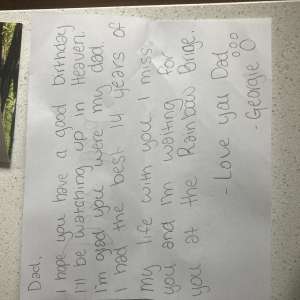 Dad,
I hope you have a good birthday
I'll be watching up in Heaven.
I'm glad you were my dad
I had the best 14 years of
my life with you. I miss
you and I'm waiting for
you at the Rainbow Brige.
- Love you Dad
- Georgie